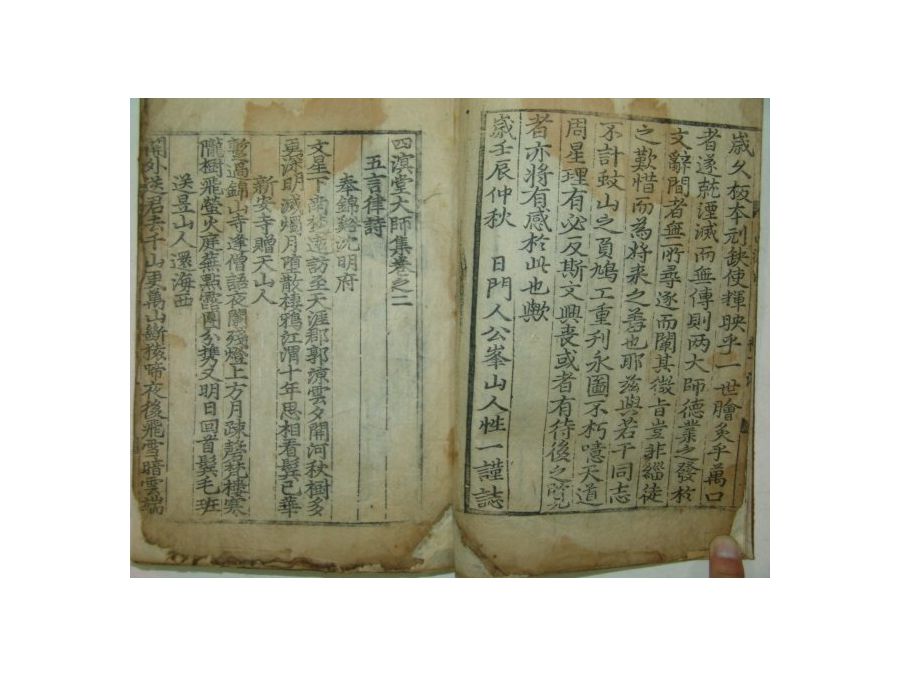 歲久板本刓缺使輝映乎一世膾炙乎萬口
者遂就湮滅而無傳則兩大師德業之發於
文辭間者無所尋逐而闡其微旨豈非緇徒
之歎惜而為將來之羞也耶玆與若干同志
不計蚊山之負鳩工重刋永圖不朽噫天道
周星理有必反斯文興喪或者有待後之覽
者亦將有感於此也歟
歲壬辰仲秋 日門人公峯山人性一謹誌
四溟堂大師集卷之二
五言律詩
奉錦谿沈明府
文星下南楚遠訪至天涯郡郭凉雲夕關河秋樹多
溟深明滅燭月墮散棲鴉江渭十年思相看鬢已華
新安寺贈天山人
暫過錦山寺逢僧語夜闌殘燈上方月疎磬梵樓寒
隴樹飛螢火庭蕪點露團分携又明日回首鬢毛班
送昱山人還海西
關外送君去千山更萬山斷猿啼夜後飛雪暗雲端